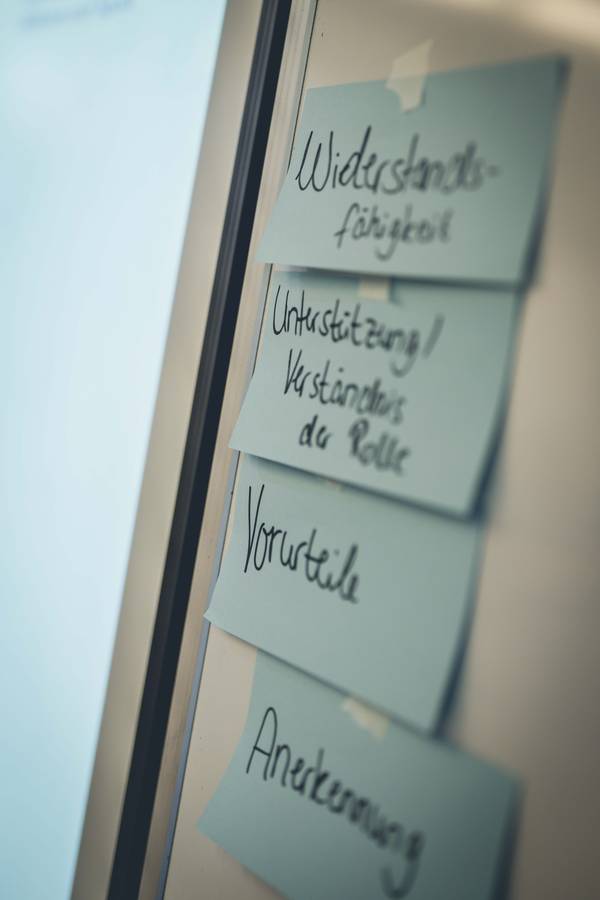 Widerstands-
fähigkeit
Unterstützung/
Verständnis
der Rolle
Vorurteile
Anerkennung